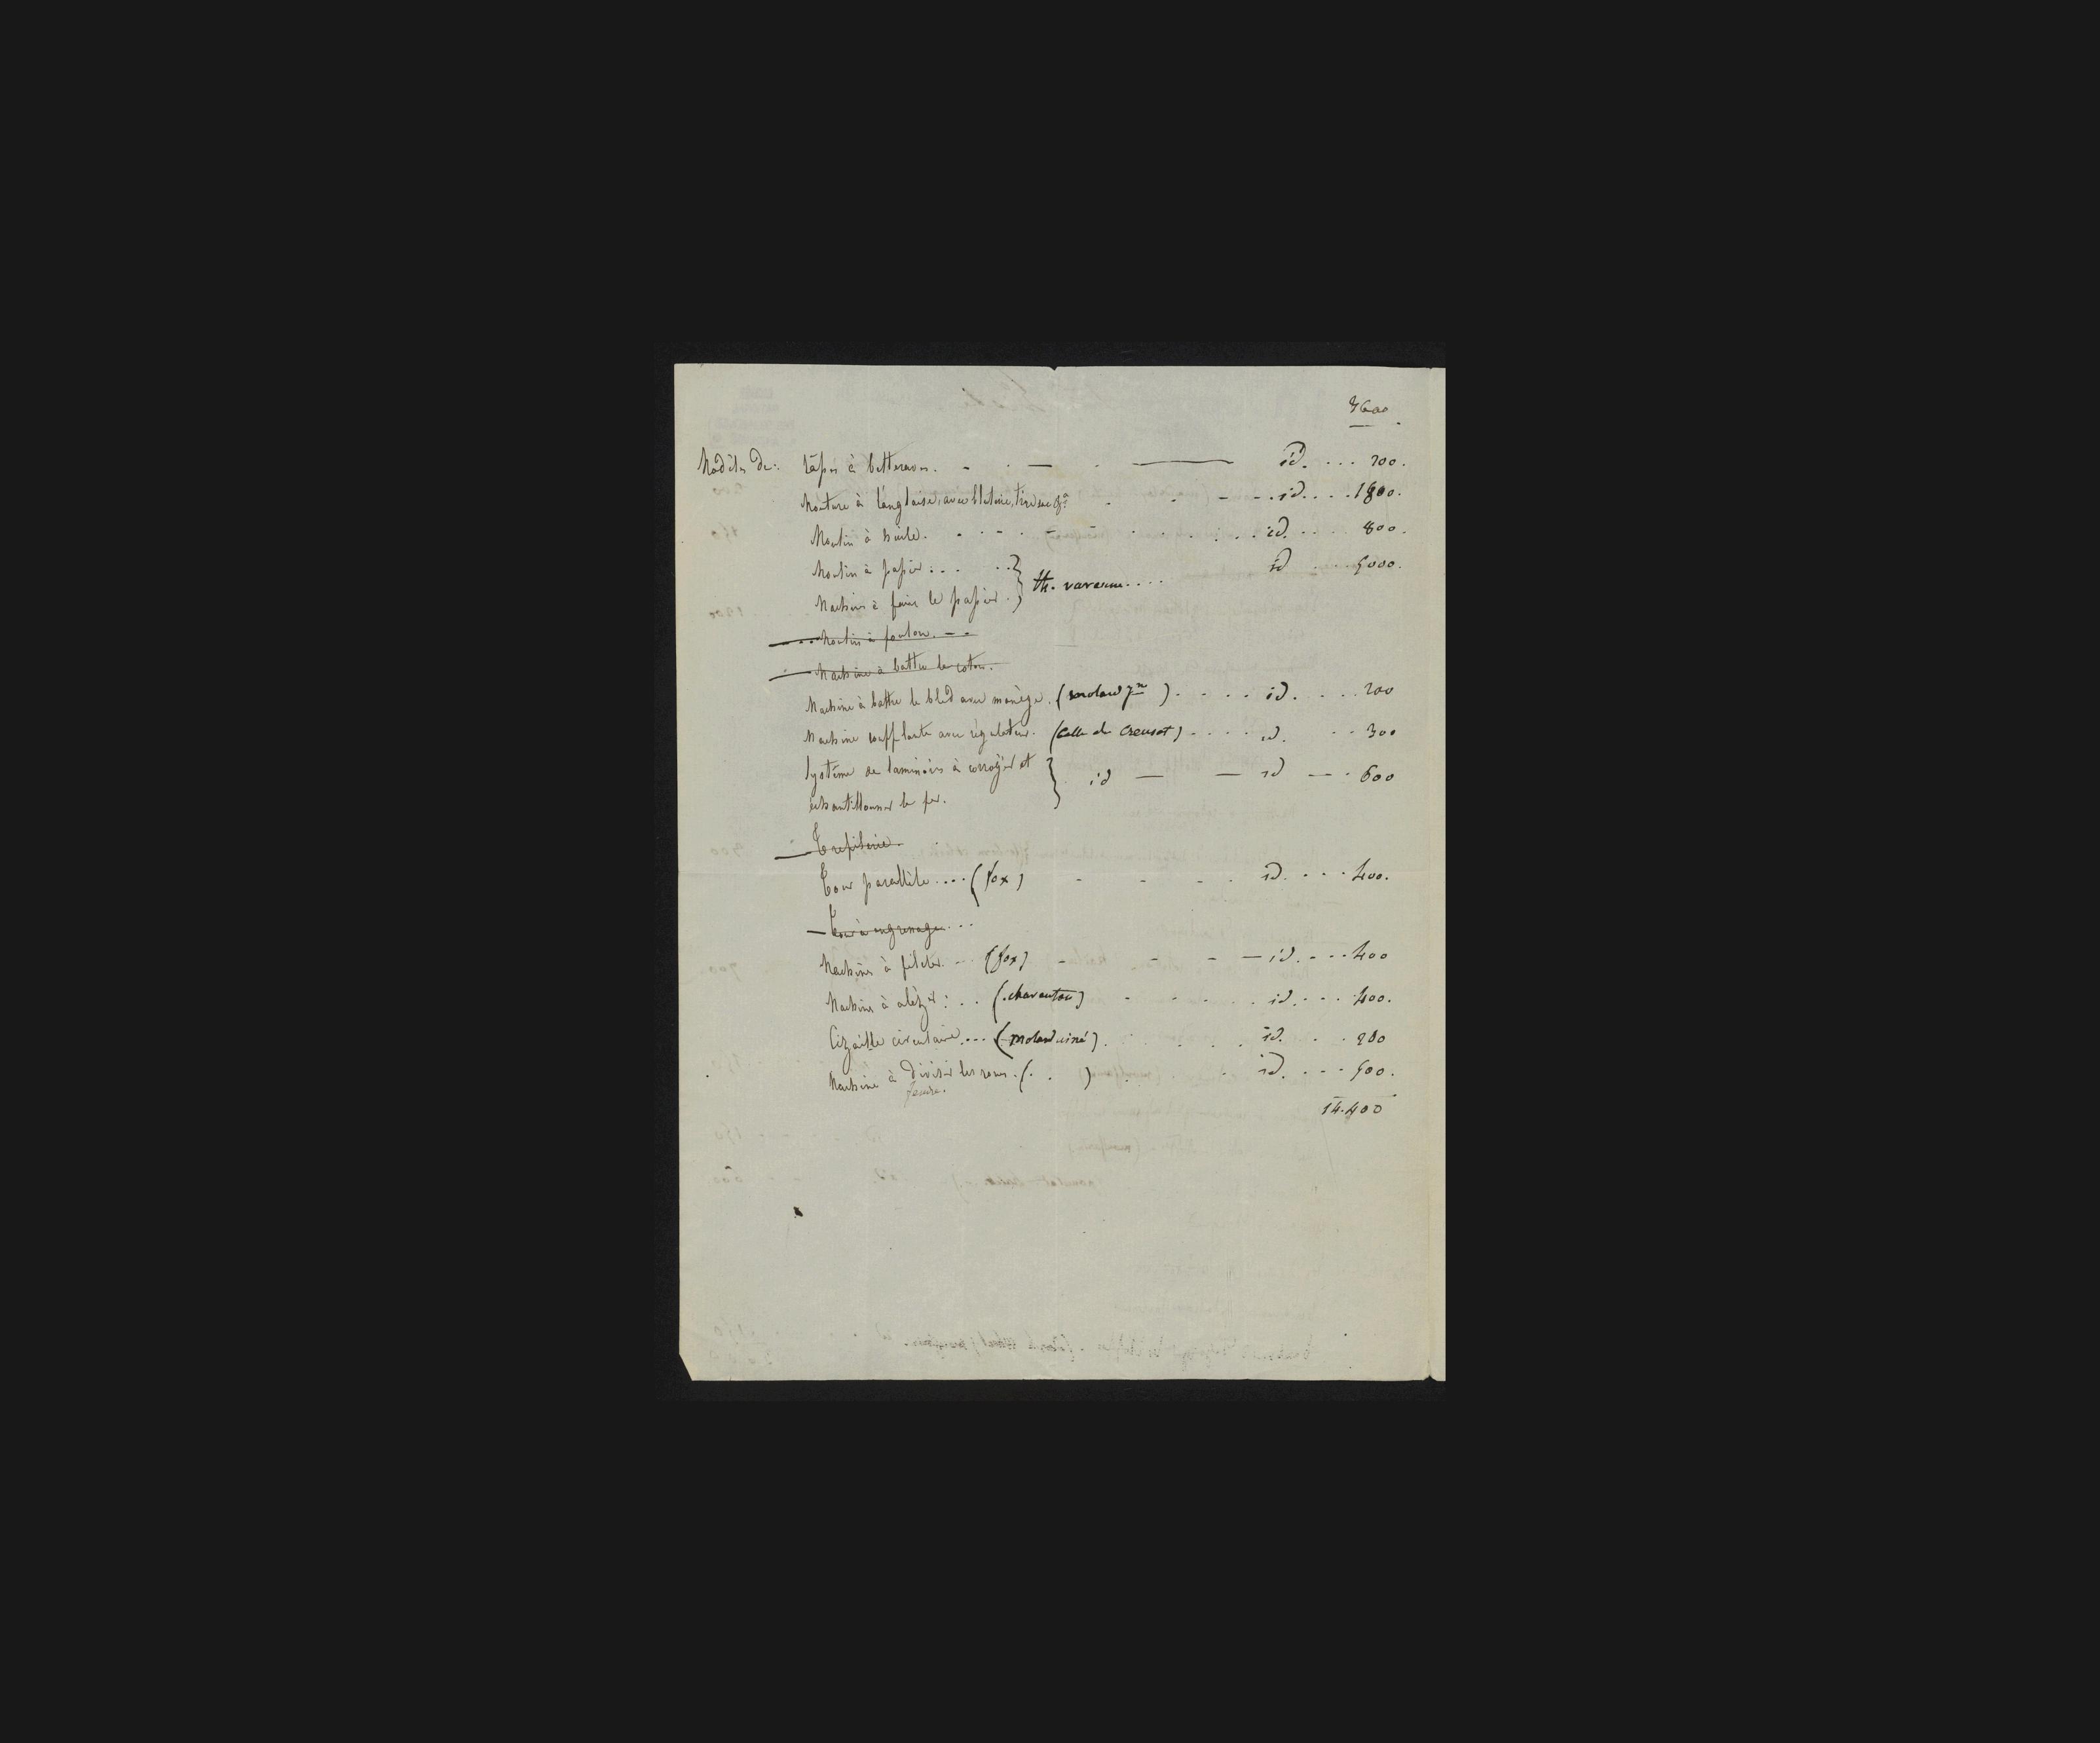 3600
Modèles de: râpes à betteraves. - . — . — id. ... 200.
Mouture à l'anglaise, avec bluterie, tire sac &a . . - - . id. ... 1800.
Moulin à huile. . - - . - - . . . . id. ... 800.
Moulin à papier ... ..} id ... 5000.
Machine à faire le papier .} th. varenne ....
... Moulin à foulon. - -
. Machine à battre le coton.
Machine à battre le bled avec manège. (molard jne ) . - . . id. ... 200
Machine soufflante avec régulateur. (Celle du Creusot) . . . . id. . . 300
Système de laminoirs à corroyer et } id — — id — . 600
échantillonner le fer.
Trefilerie.
Tour parallèle .... (fox) - - - . id. ... 400.
Tour à engrenage ...
Machine à fileter. - . (fox) - - - — id. - .. 400
Machine à alézer : . . (.charanton) - - . . id. ... 400.
Cizaille circulaire ... (molard ainé) . . . . id. . . 200
Machine à diviser les roues. (. . ) . . . id. ... 500.
fendre.
14.400